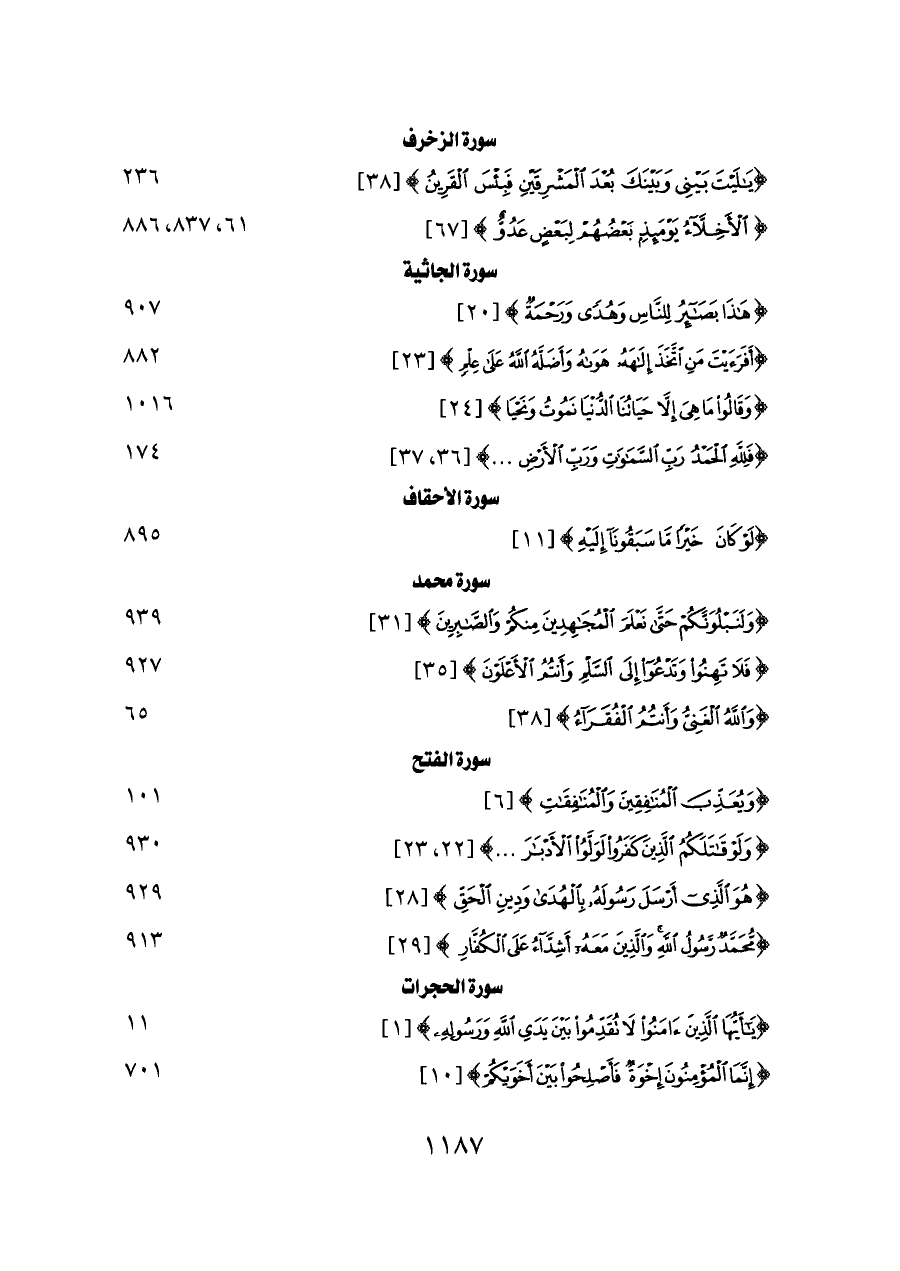 سورة الزخرف
﴿يَٰلَيْتَ بَيْنِي وَبَيْنَكَ بُعْدَ ٱلْمَشْرِقَيْنِ فَبِئْسَ ٱلْقَرِينُ ﴾ [٣٨] ٢٣٦
﴿ ٱلْأَخِلَّآءُ يَوْمَئِذٍۭ بَعْضُهُمْ لِبَعْضٍ عَدُوٌّ ﴾ [٦٧] ٦١، ٨٣٧، ٨٨٦
سورة الجاثية
﴿ هَٰذَا بَصَٰٓئِرُ لِلنَّاسِ وَهُدًى وَرَحْمَةٌ ﴾ [٢٠] ٩٠٧
﴿أَفَرَءَيْتَ مَنِ ٱتَّخَذَ إِلَٰهَهُۥ هَوَىٰهُ وَأَضَلَّهُ ٱللَّهُ عَلَىٰ عِلْمٍ ﴾ [٢٣] ٨٨٢
﴿وَقَالُوا۟ مَا هِىَ إِلَّا حَيَاتُنَا ٱلدُّنْيَا نَمُوتُ وَنَحْيَا ﴾ [٢٤] ١٠١٦
﴿فَلِلَّهِ ٱلْحَمْدُ رَبِّ ٱلسَّمَٰوَٰتِ وَرَبِّ ٱلْأَرْضِ ...﴾ [٣٦، ٣٧] ١٧٤
سورة الأحقاف
﴿لَوْ كَانَ خَيْرًا مَّا سَبَقُونَآ إِلَيْهِ ﴾ [١١] ٨٩٥
سورة محمد
﴿وَلَنَبْلُوَنَّكُمْ حَتَّىٰ نَعْلَمَ ٱلْمُجَٰهِدِينَ مِنكُمْ وَٱلصَّٰبِرِينَ ﴾ [٣١] ٩٣٩
﴿ فَلَا تَهِنُوا۟ وَتَدْعُوٓا۟ إِلَى ٱلسَّلْمِ وَأَنتُمُ ٱلْأَعْلَوْنَ ﴾ [٣٥] ٩٢٧
﴿وَٱللَّهُ ٱلْغَنِىُّ وَأَنتُمُ ٱلْفُقَرَآءُ ﴾ [٣٨] ٦٥
سورة الفتح
﴿وَيُعَذِّبَ ٱلْمُنَٰفِقِينَ وَٱلْمُنَٰفِقَٰتِ ﴾ [٦] ١٠١
﴿ وَلَوْ قَٰتَلَكُمُ ٱلَّذِينَ كَفَرُوا۟ لَوَلَّوُا۟ ٱلْأَدْبَٰرَ ...﴾ [٢٢، ٢٣] ٩٣٠
﴿ هُوَ ٱلَّذِىٓ أَرْسَلَ رَسُولَهُۥ بِٱلْهُدَىٰ وَدِينِ ٱلْحَقِّ ﴾ [٢٨] ٩٢٩
﴿مُّحَمَّدٌ رَّسُولُ ٱللَّهِ ۚ وَٱلَّذِينَ مَعَهُۥٓ أَشِدَّآءُ عَلَى ٱلْكُفَّارِ ﴾ [٢٩] ٩١٣
سورة الحجرات
﴿يَٰٓأَيُّهَا ٱلَّذِينَ ءَامَنُوا۟ لَا تُقَدِّمُوا۟ بَيْنَ يَدَىِ ٱللَّهِ وَرَسُولِهِۦ﴾ [١] ١١
﴿ إِنَّمَا ٱلْمُؤْمِنُونَ إِخْوَةٌ فَأَصْلِحُوا۟ بَيْنَ أَخَوَيْكُمْ﴾ [١٠] ٧٠١
١١٨٧